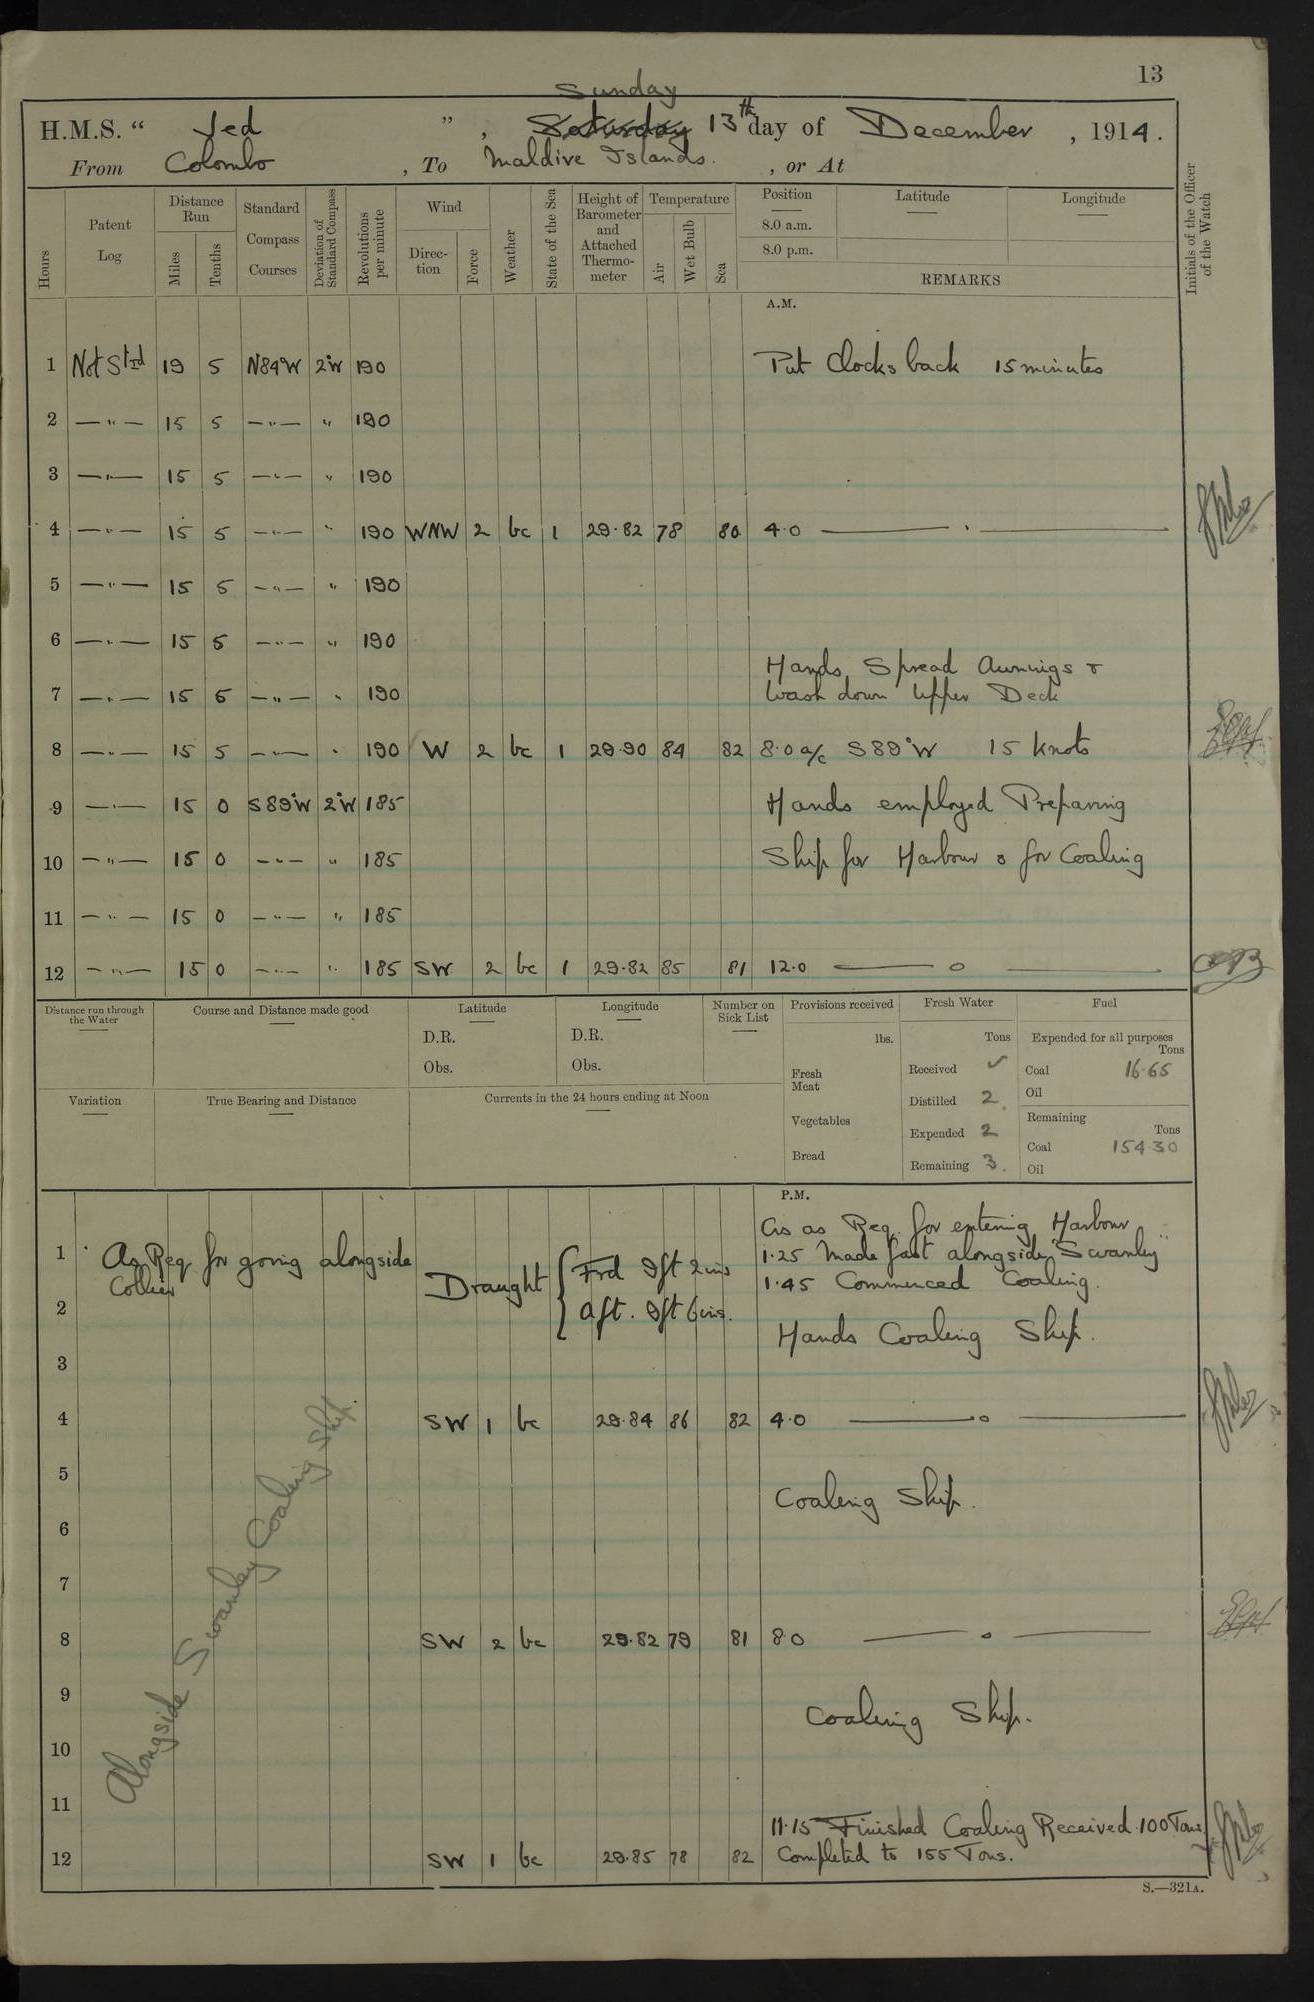 13
Sunday
H.M.S. " Jed " , Saturday 13th day of December , 1914.
From Colombo , To Maldive Islands. , or At
Hours
Patent Log
Distance Run
Miles
Tenths
Standard Compass Courses
Deviation of Standard Compass
Revolutions per minute
Wind
Direction
Force
Weather
State of the Sea
Height of Barometer and Attached Thermometer
Temperature
Air
Wet Bulb
Sea
Position
8.0 a.m.
8.0 p.m.
Latitude
Longitude
REMARKS
Initials of the Officer of the Watch
A.M.
1 Not Strd 19 5 N84°W 2°W 190 Put Clocks back 15 minutes
2 —"— 15 5 —"— " 190
3 —"— 15 5 —"— " 190
4 —"— 15 5 —"— " 190 WNW 2 bc 1 29.82 78 80 4.0
5 —"— 15 5 —"— " 190
6 —"— 15 5 —"— " 190
Hands Spread Awnings &
7 —"— 15 5 —"— " 190 Wash down Upper Deck
8 —"— 15 5 —"— " 190 W 2 bc 1 29.90 84 82 8.0 a/c S89°W 15 Knots
9 —"— 15 0 S89°W 2°W 185 Hands employed Preparing
10 —"— 15 0 —"— " 185 Ship for Harbour & for Coaling
11 —"— 15 0 —"— " 185
12 —"— 15 0 —"— " 185 SW 2 bc 1 29.82 85 81 12.0
Distance run through the Water
Course and Distance made good
Latitude
D.R.
Obs.
Longitude
D.R.
Obs.
Number on Sick List
Provisions received
lbs.
Fresh Meat
Vegetables
Bread
Fresh Water
Tons
Received ✓
Distilled 2.
Expended 2
Remaining 3.
Fuel
Expended for all purposes
Tons
Coal 16.65
Oil
Remaining
Tons
Coal 154.30
Oil
Variation
True Bearing and Distance
Currents in the 24 hours ending at Noon
P.M.
Cs as Req. for entering Harbour
1 As Req for going alongside Collier 1.25 Made fast alongside "Swanley"
Draught { Frd 9ft 2ins 1.45 Commenced Coaling.
2 aft. 9ft 6ins. Hands Coaling Ship.
3
4 SW 1 bc 29.84 86 82 4.0
5
Coaling Ship.
6
7
8 SW 2 bc 29.82 79 81 8.0
9
Coaling Ship.
10
11
Alongside Swanley Coaling Ship.
11.15 Finished Coaling Received 100 Tons
12 SW 1 bc 29.85 78 82 Completed to 155 Tons.
S.—321A.